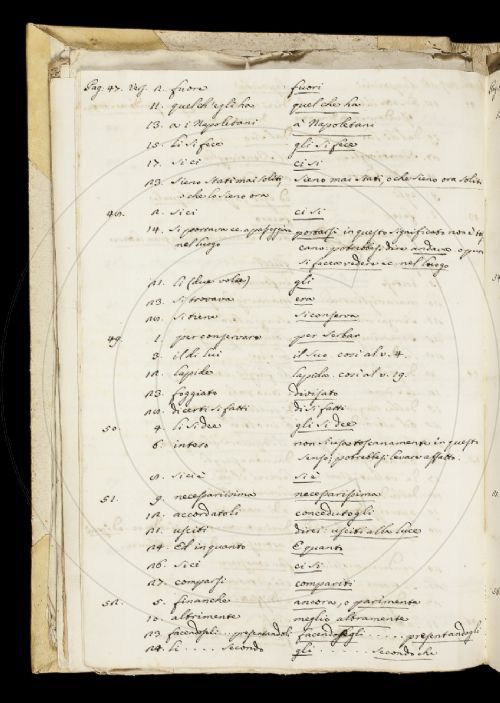 Pag. 47. Vers. 2. fuora fuori
11. quel ch'egli ha quel che ha
13. a i Napoletani a' Napoletani
15. li si fece gli si fece
17. si ci ci si
23. sieno stati mai soliti, sieno mai stati, o che sieno ora soliti
o che lo sieno ora
48. 2. si ci ci si
14. si portava ec. a passeggiare portarsi in questo significato non è
nel luogo cano: potrebbesi dire andava, o pure
si facea vedere ec. nel luogo
21. li (due volte) gli
23. si trovava era
si tiene si conserva
49. 1. per conservare per serbar
3. il di lui il suo così al v. 4.
12. lapide lapida. così al v. 19.
23. foggiato divisato
di certi sì fatti di sì fatti
50. 4. li si dee gli si dee
6. inteso non si usa toscanamente in questo
senso; potrebbesi levare affatto.
si è
51. 9. necessariissima necessarissima
12. accordatoli concedutogli
21. usciti direi: usciti alla luce
24. Ed in quanto E quanto
26. si ci ci si
27. comparsi compariti
52. 5. finanche ancora, o parimente
10. altrimente meglio altramente
23. facendoseli...presentandoli facendosegli......presentandogli
24. li......secondo gli.......secondo che